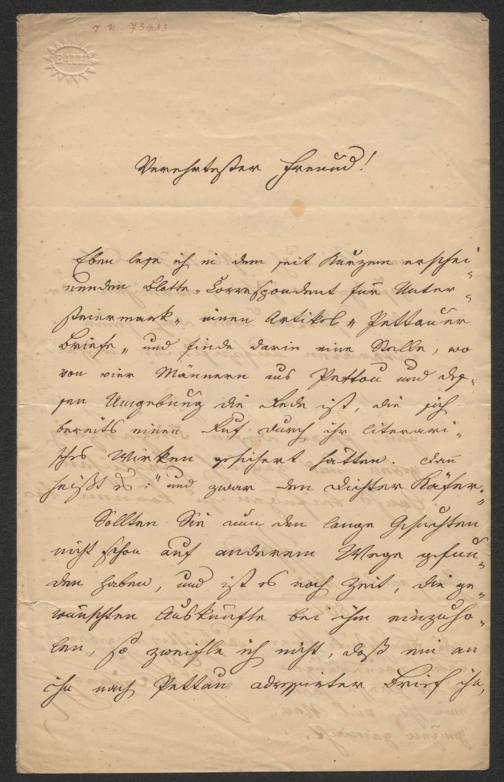 Verehrtester Freund!
Eben lese ich in dem seit Kurzem erschei-
nenden Blatte "Correspondent für Unter-
steiermark" einen Artikel "Pettauer
Briefe" und finde darin eine Stelle, wo
von vier Männern aus Pettau und des-
sen Umgebung die Rede ist, die sich
bereits einen Ruf durch ihr literari-
sches Wirken gesichert hätten. Dann
heißt es: "und zwar den Dichter Käfer."
Sollten Sie nun den lange Gesuchten
nicht schon auf anderem Wege gefun-
den haben, und ist es noch Zeit, die ge-
wünschten Auskünfte bei ihm einzuho-
len, so zweifle ich nicht, daß ein an
ihn nach Pettau adressirter Brief ihn,